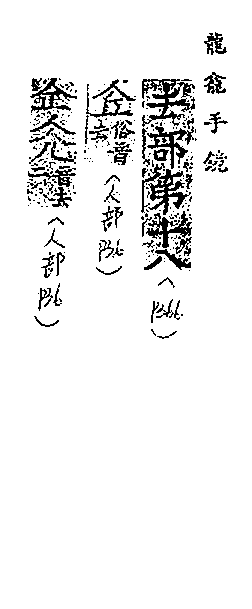 龍龕手鏡
去部第十八(P366.)
俗音去(人部P36.)
二音去(人部P36.)